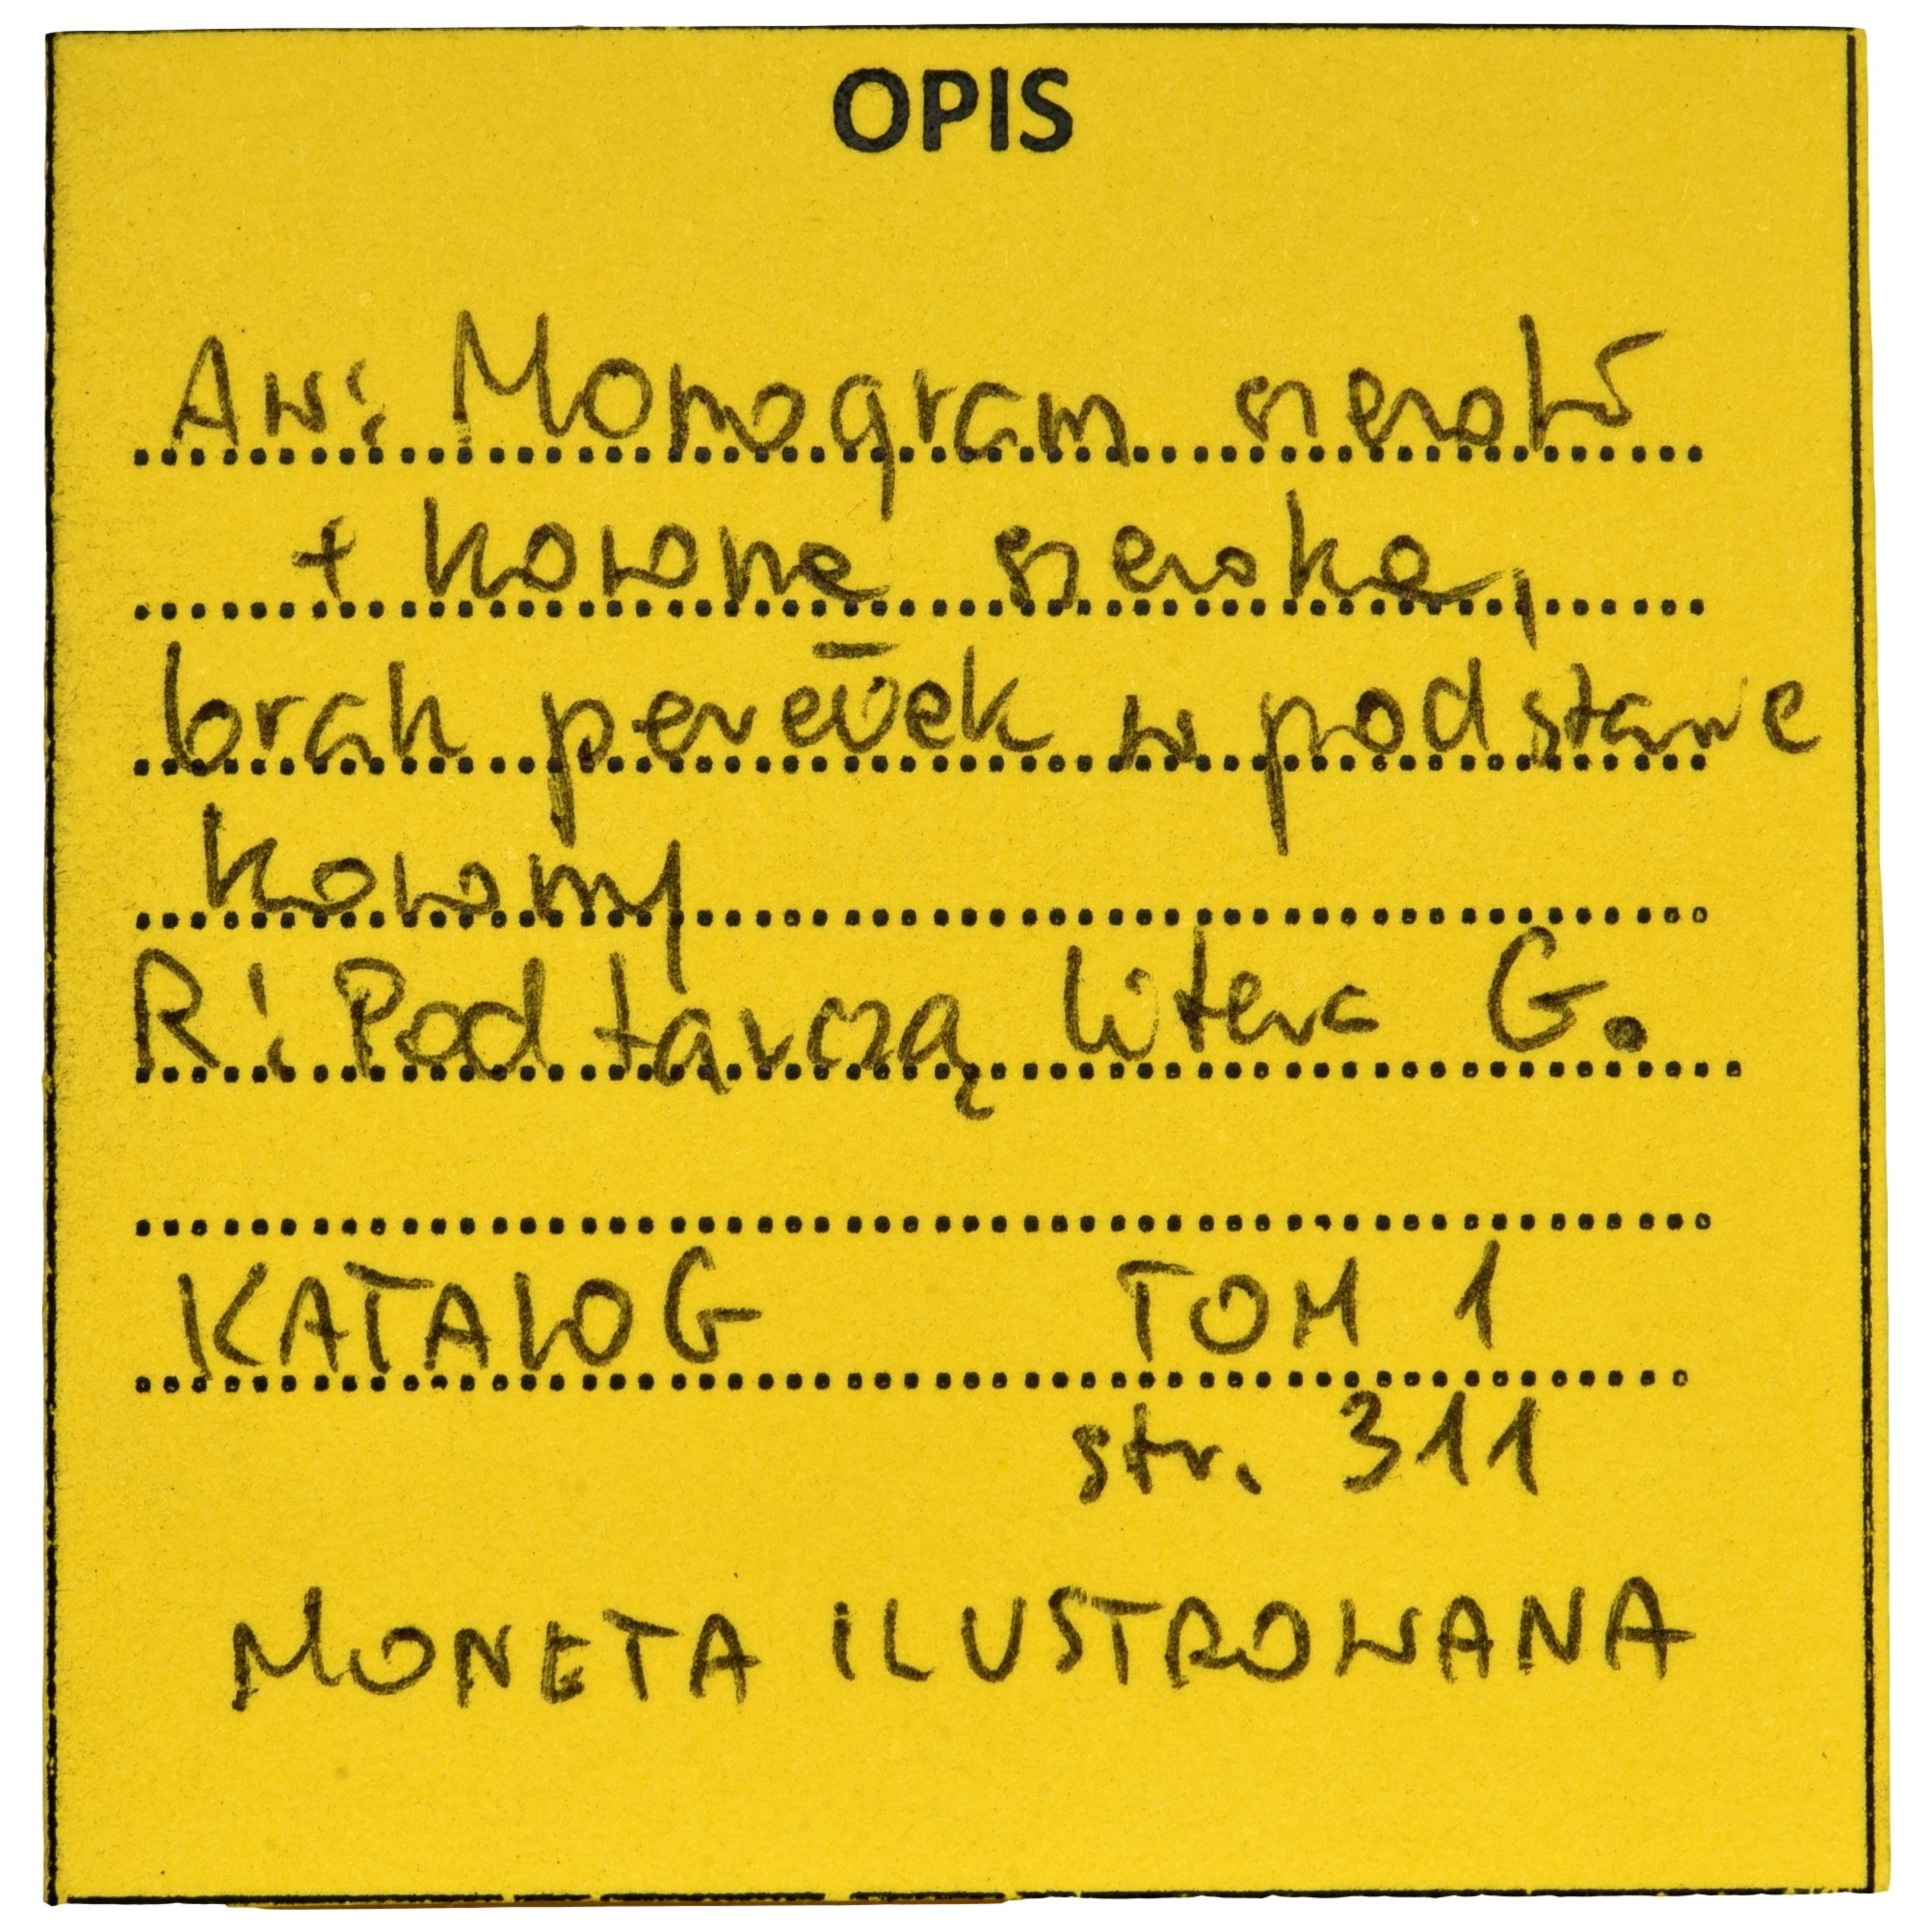 OPIS
Aw: Monogram szeroki
+ korona szeroka,
brak perełek w podstawie
korony
R: Pod tarczą litera G.
KATALOG TOM 1
str. 311
MONETA ILUSTROWANA